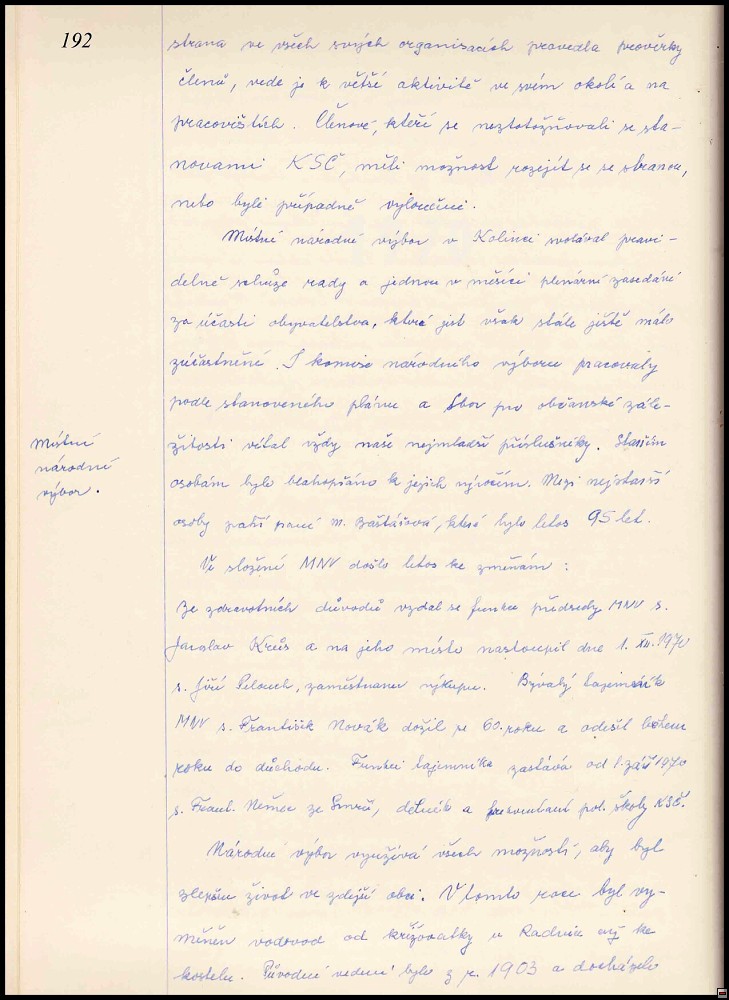 192
strana ve všech svých organisacích provedla prověrky
členů, vede je k větší aktivitě ve svém okolí a na
pracovištích. Členové, kteří se neztotožňovali se sta-
novami KSČ, měli možnost rozejít se se stranou,
nebo byli případně vyloučeni.
Místní národní výbor v Kolinci svolával pravi-
delně schůze rady a jednou v měsíci plenární zasedání
za účasti obyvatelstva, které jest však stále ještě málo
zúčastněné. I komise národního výboru pracovaly
podle stanoveného plánu a Sbor pro občanské zále-
žitosti vítal vždy naše nejmladší příslušníky. Starším
osobám bylo blahopřáno k jejich výročím. Mezi nejstarší
osoby patří paní M. Baštářová, které bylo letos 95 let.
Místní
národní
výbor.
Ve složení MNV došlo letos ke změnám:
Ze zdravotních důvodů vzdal se funkce předsedy MNV s.
Jaroslav Kreůs a na jeho místo nastoupil dne 1. XII. 1970
s. Jiří Pelouch, zaměstnanec výkupu. Bývalý tajemník
MNV s. František Novák dožil se 60. roku a odešel během
roku do důchodu. Funkci tajemníka zastává od 1. září 1970
s. Frant. Němec ze dělník a pol. školy KSČ.
Národní výbor využívá všech možností, aby byl
zlepšen život ve zdejší obci. V tomto roce byl vy-
měněn vodovod od křižovatky u Radnice až ke
kostelu. Původní vedení bylo z r. 1903 a docházelo